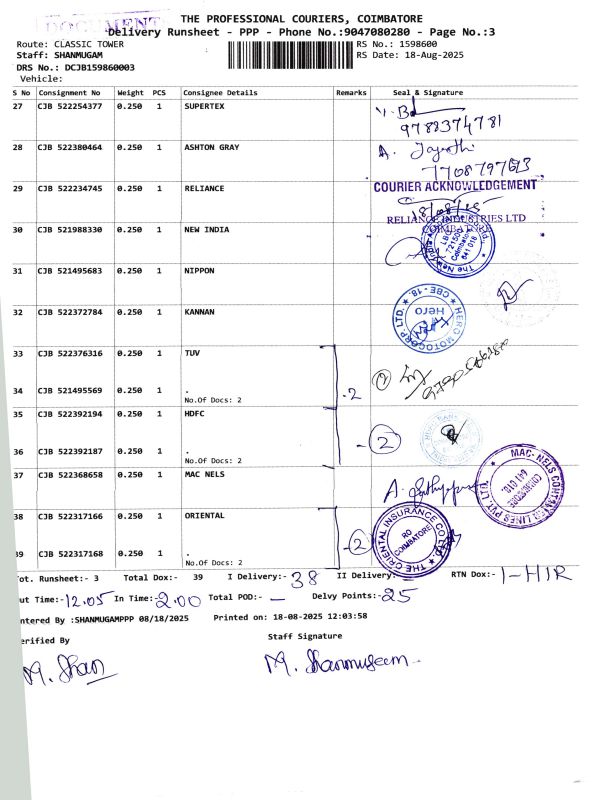 DOCUMENT
THE PROFESSIONAL COURIERS, COIMBATORE
Delivery Runsheet - PPP - Phone No.:9047080280 - Page No.:3
Route: CLASSIC TOWER RS No.: 1598600
Staff: SHANMUGAM RS Date: 18-Aug-2025
DRS No.: DCJB159860003
Vehicle:
S No Consignment No Weight PCS Consignee Details Remarks Seal & Signature
27 CJB 522254377 0.250 1 SUPERTEX
9788374781
28 CJB 522380464 0.250 1 ASHTON GRAY
A. Jayanthi
29 CJB 522234745 0.250 1 RELIANCE
COURIER ACKNOWLEDGEMENT
18/08/25
RELIANCE INDUSTRIES LTD
COIMBATORE
30 CJB 521988330 0.250 1 NEW INDIA
31 CJB 521495683 0.250 1 NIPPON
32 CJB 522372784 0.250 1 KANNAN
HERO MOTOCORP LTD. CBE-18.
Hero
33 CJB 522376316 0.250 1 TUV
34 CJB 521495569 0.250 1 . -2
No.Of Docs: 2
35 CJB 522392194 0.250 1 HDFC
- 2
36 CJB 522392187 0.250 1 .
No.Of Docs: 2
37 CJB 522368658 0.250 1 MAC NELS
MAC-NELS CONTAINER LINES PVT LTD.
COIMBATORE
641 018.
38 CJB 522317166 0.250 1 ORIENTAL
THE ORIENTAL INSURANCE CO LTD
RO
COIMBATORE
-2
39 CJB 522317168 0.250 1 .
No.Of Docs: 2
Tot. Runsheet:- 3 Total Dox:- 39 I Delivery:- 38 II Delivery:- RTN Dox:- 1-HIR
out Time:- 12.05 In Time:- 2.00 Total POD:- — Delvy Points:- 25
ntered By :SHANMUGAMPPP 08/18/2025 Printed on: 18-08-2025 12:03:58
erified By Staff Signature
M. Shan M. Shanmugam